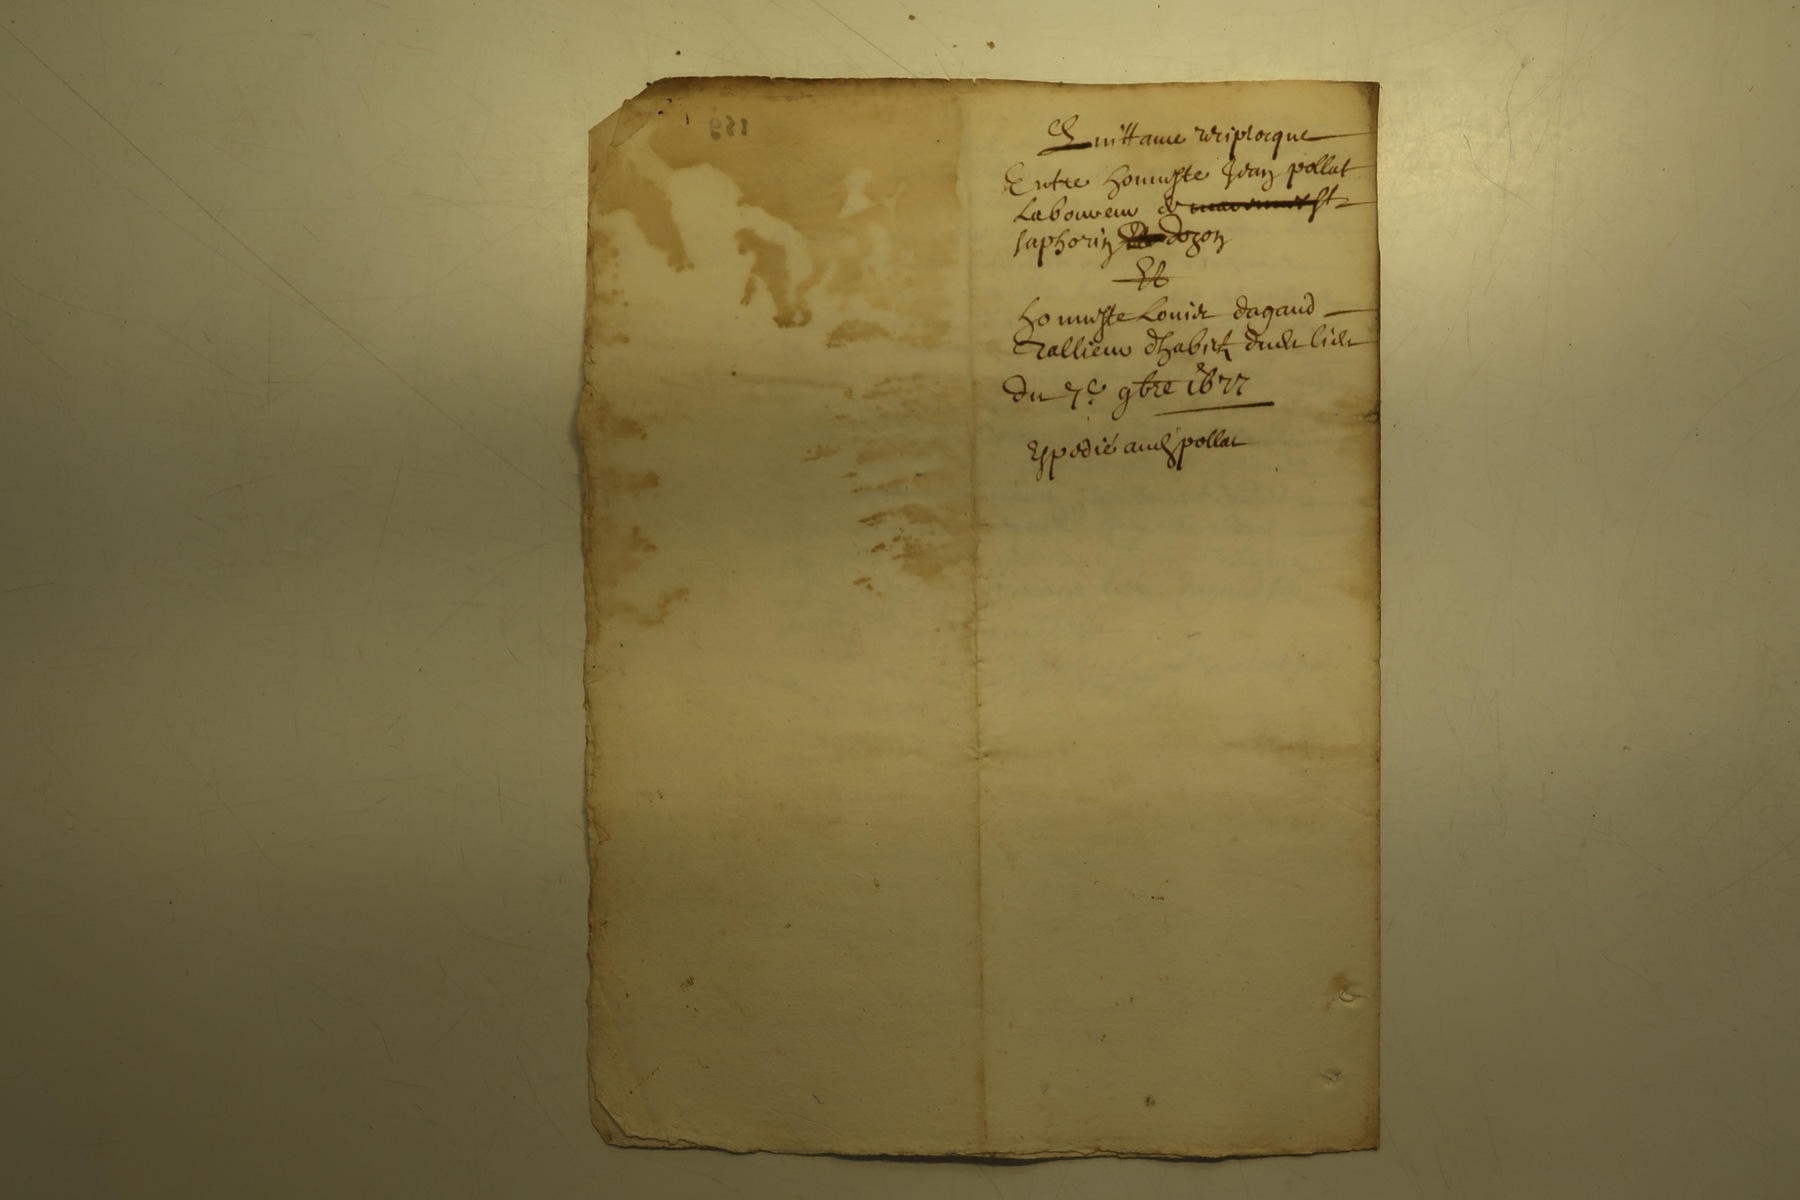 Quittance reciplocque
Entre honneste Jean pollat
Laboureur de st
saphorin dozon
Et
honneste Louis dagand
Tallieur d'habitz dudt lieu
du 7e 9bre 1677
Expedié audt pollat